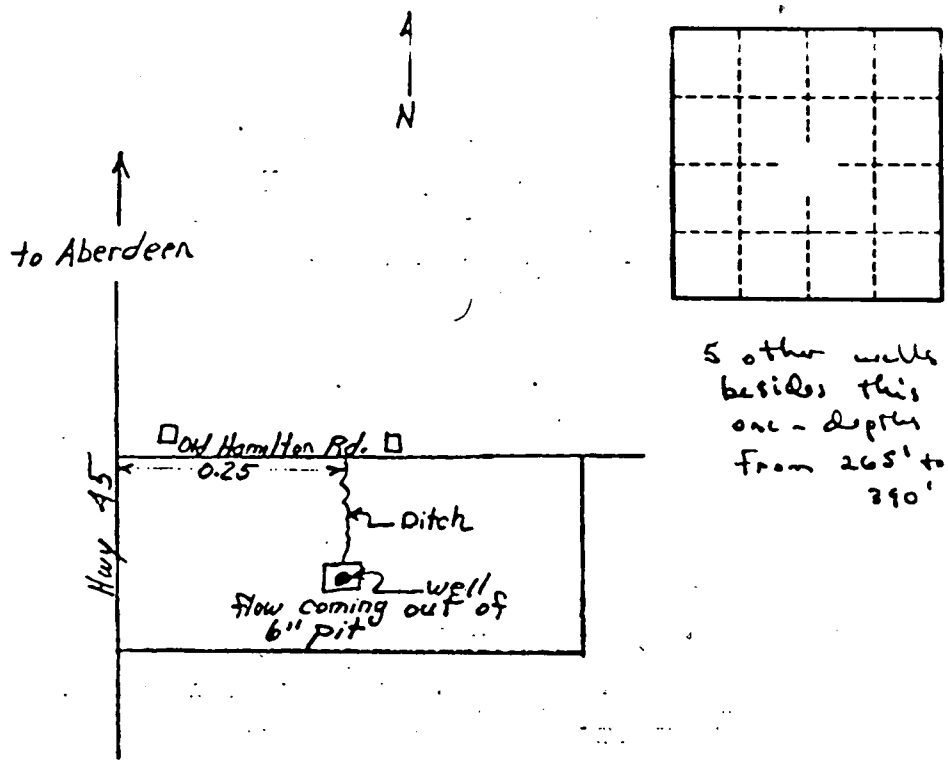 N
to Aberdeen
5 other wells
besides this
one - depths
from 265' to
390'
Old Hamilton Rd.
0.25
Hwy 45
Ditch
well
flow coming out of
6" pit